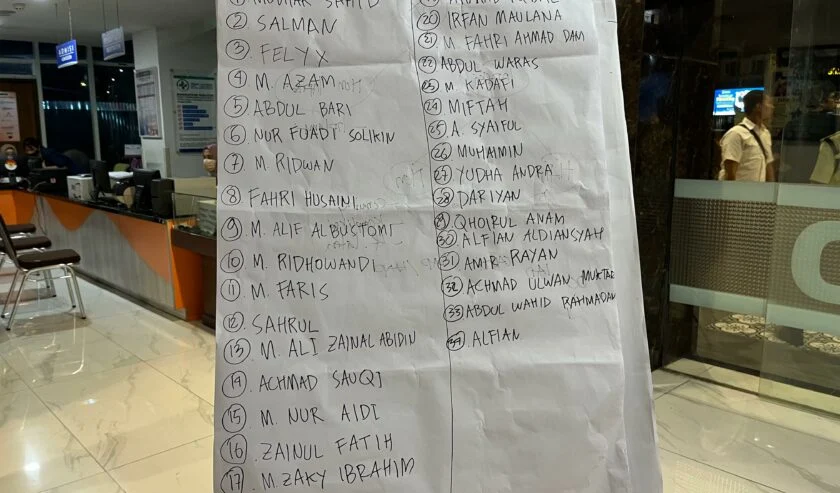 2 SALMAN
3 FELYX
4 M. AZAM
5 ABDUL BARI
6 NUR FUADI SOLIKIN
7 M. RIDWAN
8 FAHRI HUSAINI
9 M. ALIF ALBUSTOMI
10 M. RIDHOWANDI
11 M. FARIS
12. SAHRUL
13 M. ALI ZAINAL ABIDIN
14 ACHMAD SAUQI
15 M. NUR AIDI
16 ZAINUL FATIH
17 M. ZAKY IBRAHIM
20 IRFAN MAULANA
21 M. FAHRI AHMAD DANI
22 ABDUL WARAS
23 M. KADAFI
24 MIFTAH
25 A. SYAIFUL
26 MUHAIMIN
27 YUDHA ANDRA
28 DARIYAN
29 QHOIRUL ANAM
30 ALFIAN ALDIANSYAH
31 AMIR RAYAN
32 ACHMAD ULWAN MUKTAR
33 ABDUL WAHID RAHMADAN
34 ALFIAN